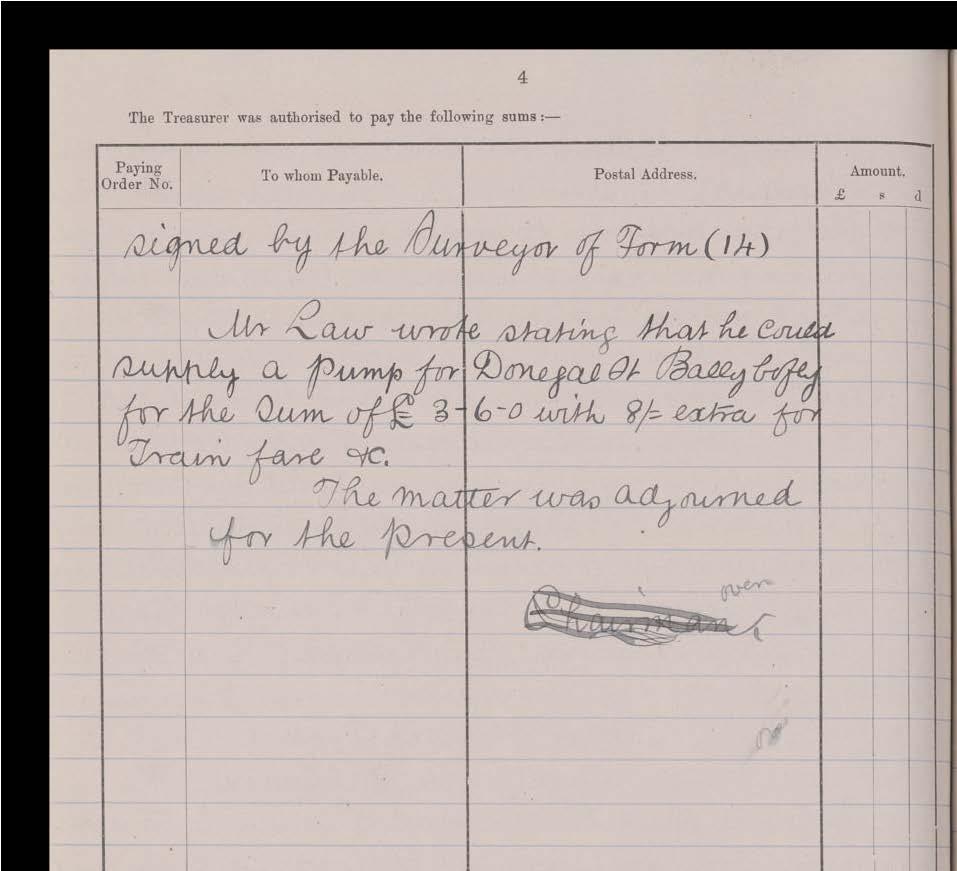 4
The Treasurer was authorised to pay the following sums :—
Paying Order No.
To whom Payable.
Postal Address.
Amount.
£ s d
signed by the Surveyor of Form (14)
Mr Law wrote stating that he could
supply a Pump for Donegal St Ballybofey
for the Sum of £ 3-6-0 with 8/= extra for
Train fare &c.
The matter was adjourned
for the present.
over
Chairman